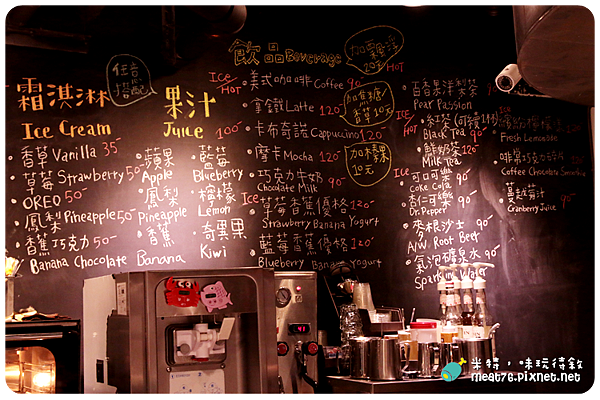 霜淇淋
Ice Cream
任意搭配
香草Vanilla 35
草莓Strawberry 50
OREO 50
鳳梨Pineapple 50
香蕉巧克力 50
Banana Chocolate
果汁
Juice 100
蘋果
Apple
鳳梨
Pineapple
香蕉
Banana
藍莓
Blueberry
檸檬
Lemon
奇異果
Kiwi
飲品Beverage
ICE
HOT
美式咖啡Coffee 90
拿鐵Latte 120
卡布奇諾Cappuccino 120
摩卡Mocha 120
巧克力牛奶 90
Chocolate Milk
ICE
草莓香蕉優格 120
Strawberry Banana Yogurt
藍莓香蕉優格 120
Blueberry Banana Yogurt
HOT
百香果洋梨茶
Pear Passion
ICE
HOT
紅茶
Black Tea 90
鮮奶茶 120
Milk Tea
ICE
可口可樂 90
Coke Cola
杏仁可樂 90
Dr. Pepper
麥根沙士 90
A/W Root Beer
氣泡礦泉水 90
Sparking Water
Fresh Lemonade
Coffee Chocolate Smoothie
蔓越莓汁
Cranberry Juice 90
米特,味玩待敘
meat76.pixnet.net